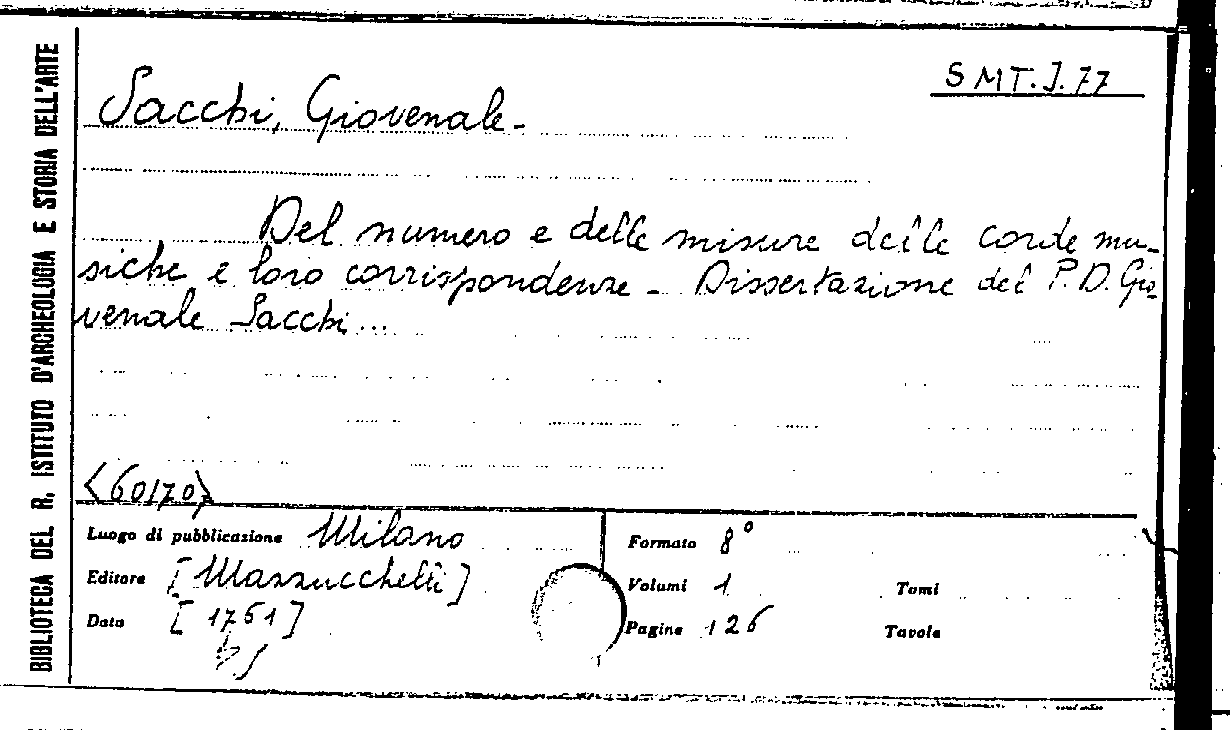 BIBLIOTECA DEL R. ISTITUTO D'ARCHEOLOGIA E STORIA DELL'ARTE
SMT.J.77
Sacchi, Giovenale-
Del numero e delle misure delle corde mu-
siche e loro corrispondenze - Dissertazione del P.D. Gio-
venale Sacchi...
<60170>
Luogo di pubblicazione Milano
Formato 8°
Editore [Mazzucchelli]
Volumi 1
Tomi
Data [1761]
Pagine 126
Tavole